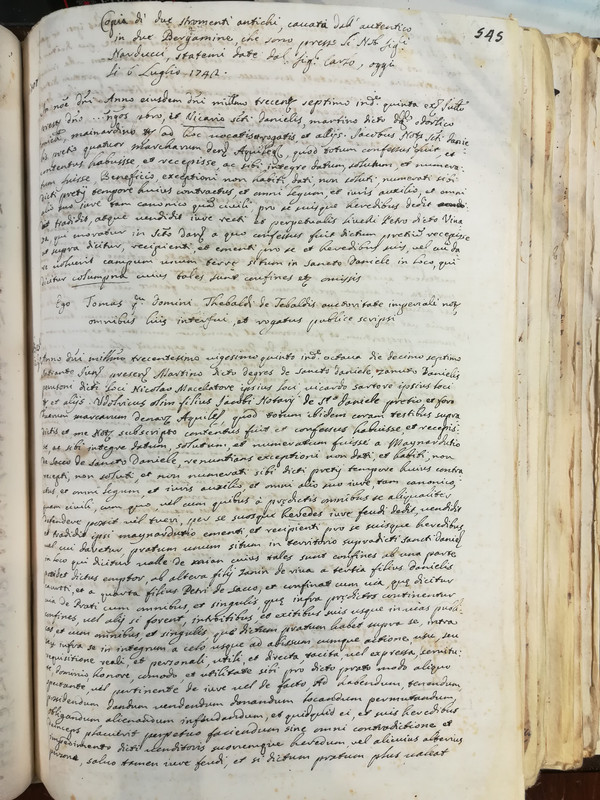 545
Copia di due stromenti antichi, cavata dall' autentico
in due Bergamine, che sono presso li Nob. Sigri
Narducci, statemi date dal Sigr
li 6 Luglio 1742.
Anno eiusdem dni millmo trecentmo septimo indne quinta
sti danielis, martino dicto
mainardino et ad hoc vocatis rogatis et alijs. Jacobus Nots sti Danie
pretij quatuor marcharum denar. Aquilejs., quod totum confessus fuit, et
contentus habuisse et recepisse, ac sibi integre datum, solutum, et numera-
tum fuisse. Beneficis, exceptioni non habiti, dati, non soluti, numerati sibi
dicti pretij tempore huius contractus et omni legum, et iuris auxilio, et omni
alio suo iure tam canonico quam civili pro se suisque heredibus dedit
et tradidit, atque vendidit iure recti et perpetualis livelli Petro dicto Viua
qui morabatur in sto Dane. a quo confessus fuit dictum pretium recepisse
ut supra dicitur, recipienti, et ementi pro se et heredibus suis, vel cui da
re voluerit campum unum terre situm in Sancto Daniele in loco, qui
dicitur columpna cuius tales sunt confines et omissis
Ego Tomas qm Domini Thebaldi de Tebaldis auctoritate imperiali not.
omnibus his interfui, et rogatus publice scripsi
Anno dni millmo trecentesimo vigesimo quinto indne octaua die decimo septimo
intrante Junij presen. Martino dicto degres de sancto daniele, zanuto danielis
dicti loci Nicolao Macellatore ipsius loci, vicardo sartore ipsius loci
et alijs. Vdolricus olim filius Jacobi Notarij de sto daniele pretio et foro
marcarum denar. Aquilejs. quod totum ibidem coram testibus supra
dictis et me Noto subscripto contentus fuit et confessus habuisse, et recepis-
se, ac sibi integre datum, solutum, et numeratum fuisse a Maynarditio
de Sancto Daniele, renuntians exceptioni non dati, et habiti, non
recepti, non soluti, et non numerati sibi dicti pretij tempore huius contra
ctus, et omni legum, et iuris auxilio et omni alio suo iure, tam canonico,
quam civili, cum quo vel cum quibus a predictis omnibus se aliqualiter
defendere posset vel tueri, per se suosque heredes iure feudi dedit, vendidit
et tradidit ipsi maynardutio ementi, et recipienti pro se suisque heredibus,
vel cui daretur, pratum unum situm in territorio supradicti sancti Daniel
in loco qui dicitur valle de cuius tales sunt confines ab una parte
possidet dictus emptor, ab altera filij Zanin de viua a tertia filius Danielis
et a quarta filius Petri de Sacu, et confinat cum via, que dicitur
via de Prati cum omnibus, et singulis, que infra predictos continentur
confines, vel alij si forent, introitibus et exitibus suis usque in vias publi-
cas et cum omnibus, et singulis, que dictum pratum habet supra se, intra
et infra se in integrum a celo usque ad abissum cumque actione, usu, seu
requisitione reali, et personali, utili, et directa, tacita, vel expressa, servitu-
te, dominio honore, comodo et utilitate sibi pro dicto prato modo aliquo
spectante, vel pertinente de iure vel de facto. Ad habendum, tenendum
possidendum dandum vendendum donandum locandum permutandum,
obligandum alienandum infeudandum, et quidquid ei, et suis heredibus
deinceps placuerit perpetuo faciendum sine omni contradictione et
impedimento dicti venditoris suorumque heredum vel alicuius alterius
persone, salvo tamen iure feudi, et si dictum pratum plus valeat